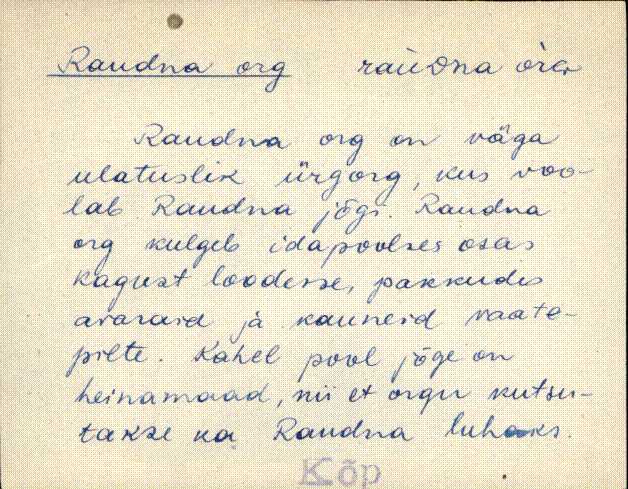 Raudna org raùDna òrG
Raudna org on väga
ulatuslik ürgorg, kus voo-
lab Raudna jõgi. Raudna
org kulgeb idapoolses osas
kagust loodesse, pakkudes
avaraid ja kauneid vaate-
pilte. Kahel pool jõge on
heinamaad, nii et orgu kutsu-
takse ka Raudna luhaks.
Kõp